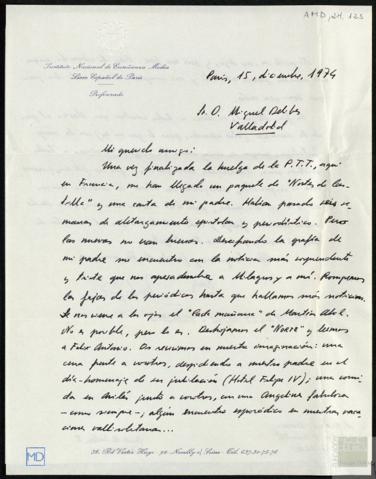 AMD, 24, 125
Instituto Nacional de Enseñanza Media
Liceo Español de París
Profesorado
París, 15, diciembre, 1974
Sr. D. Miguel Delibes
Valladolid
Mi querido amigo:
Una vez finalizada la huelga de la P.T.T., aquí
en Francia, me han llegado un paquete de "Norte de Cas-
tilla" y una carta de mi padre. Habían pasado seis se-
manas de aletargamiento epistolar y periodístico. Pero
las nuevas no son buenas. Descifrando la grafía de
mi padre me encuentro con la noticia más
y triste que nos apesadumbra a Milagros y a mí. Rompemos
las fajas de los periódicos hasta que hallamos más noticias.
Se nos viene a los ojos el "Pasto mañana" de Martín Abril.
No es posible, pero lo es. Desdoblamos el "Norte" y leemos
a Félix Antonio. Os revivimos en nuestra imaginación: una
cena junto a vosotros, despidiendo a nuestro padre en el
día-homenaje de su jubilación (Hotel Felipe IV), una comi-
da en junto a vosotros, con una Angelines fabulosa
-como siempre-, algún encuentro esporádico en nuestras vaca-
ciones vallisoletanas...
36, Bd Victor Hugo - 92. Neuilly s/ Seine - Tél.
MD